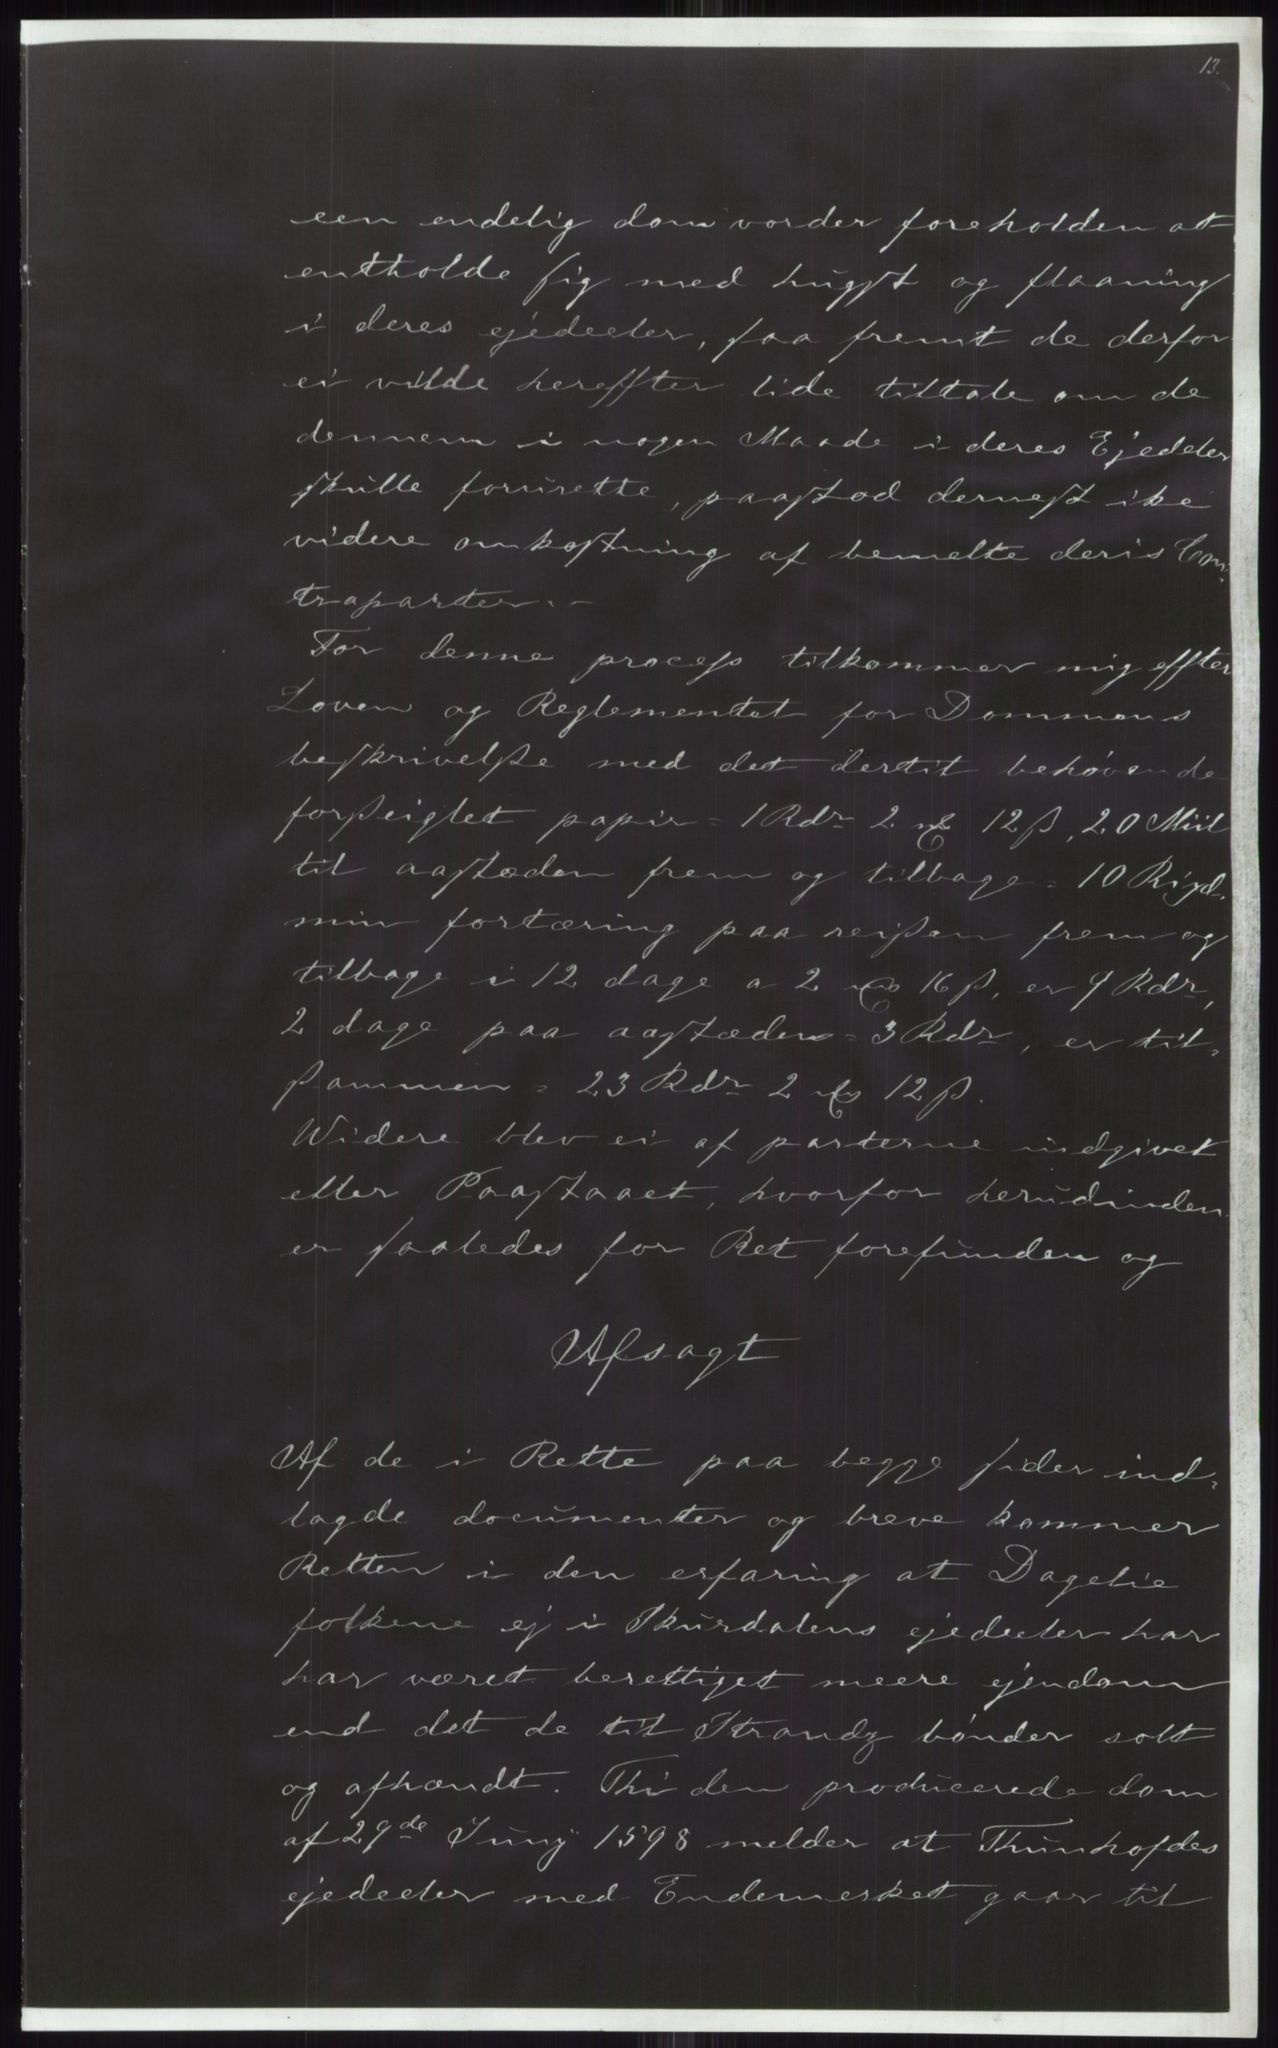 13.
een endelig dom vorder foreholden at
entholde sig med hugst og flaaning
i deres ejedeeler, saa fremt de derfor
ei vilde hereffter lide tiltale om de
dennem i nogen Maade i deres Ejedeler
skulle forurette, paastod dernest ike
videre omkostning af bemelte deris Con-
traparter.-
For denne process tilkommer mig effter
Loven og Reglementet for Dommens
beskrivelsse med det dertil behövende
forsseiglet papir = 1 Rdr 2 12 ß, 20 Miil
til aastæden frem og tilbage = 10 Rixd.
min fortæring paa reissen frem og
tilbage i 12 dage a 2 16 ß, er 9 Rdr,
2 dage paa aastæden = 3 Rdr, er til-
ssammen = 23 Rdr 2 12 ß.
Widere blev ei af parterne indgivet
eller Paastaaet, hvorfor herudinden
er saaledes for Ret forefunden og
Afsagt
Af de i Rette paa begge sider ind-
lagde documenter og breve kommer
Retten i den erfaring at Dagelie
folkene ej i Skurdalens ejedeeler har
har været berettiget meere ejendom
end det de til Strandz bönder solt
og afhændt. Thi den producerede dom
af 29de Juny 1598 melder at Thunhofdes
ejedeeler med Endemerket gaar til